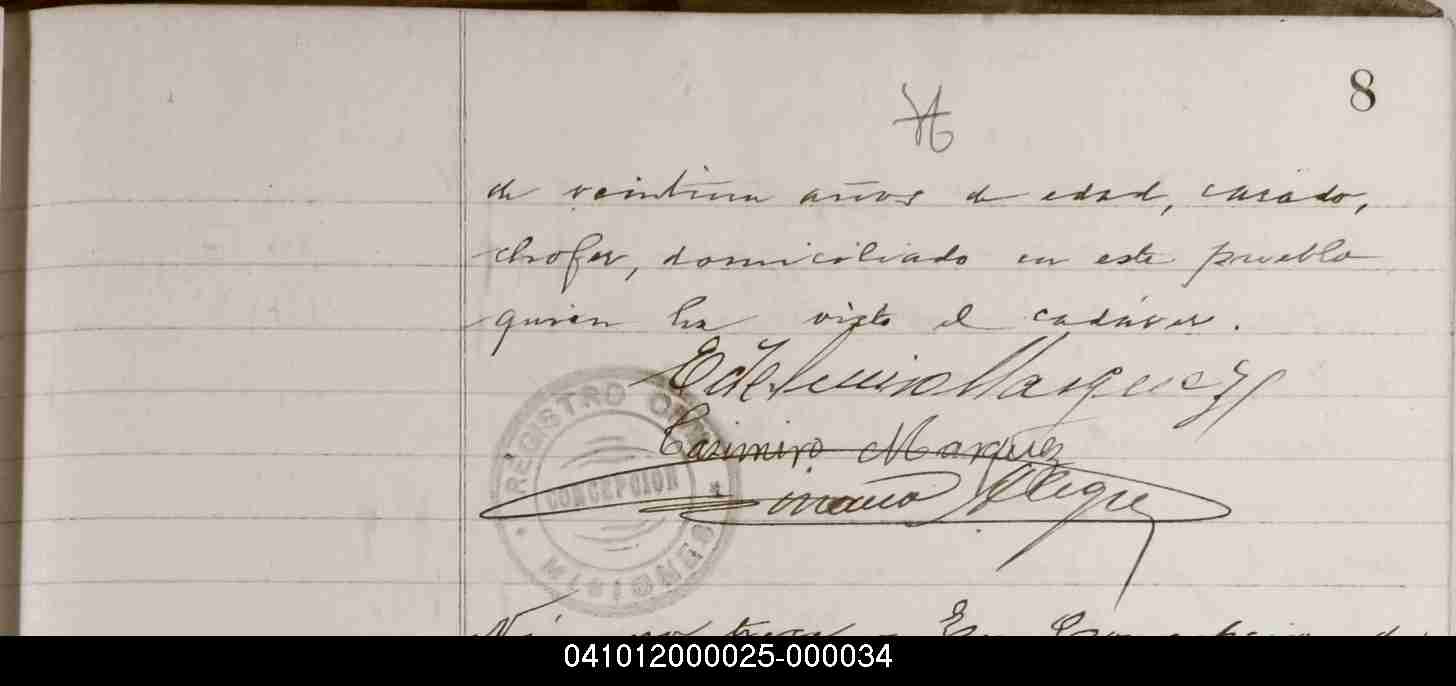 8
de veintiun años de edad, casado,
chofer, domiciliado en este pueblo
quien ha visto el cadáver.
Edelmiro Marquez
REGISTRO
CONCEPCION
MISIONES
Casimiro Marquez
Alegre
trece En Concepcion de
041012000025-000034